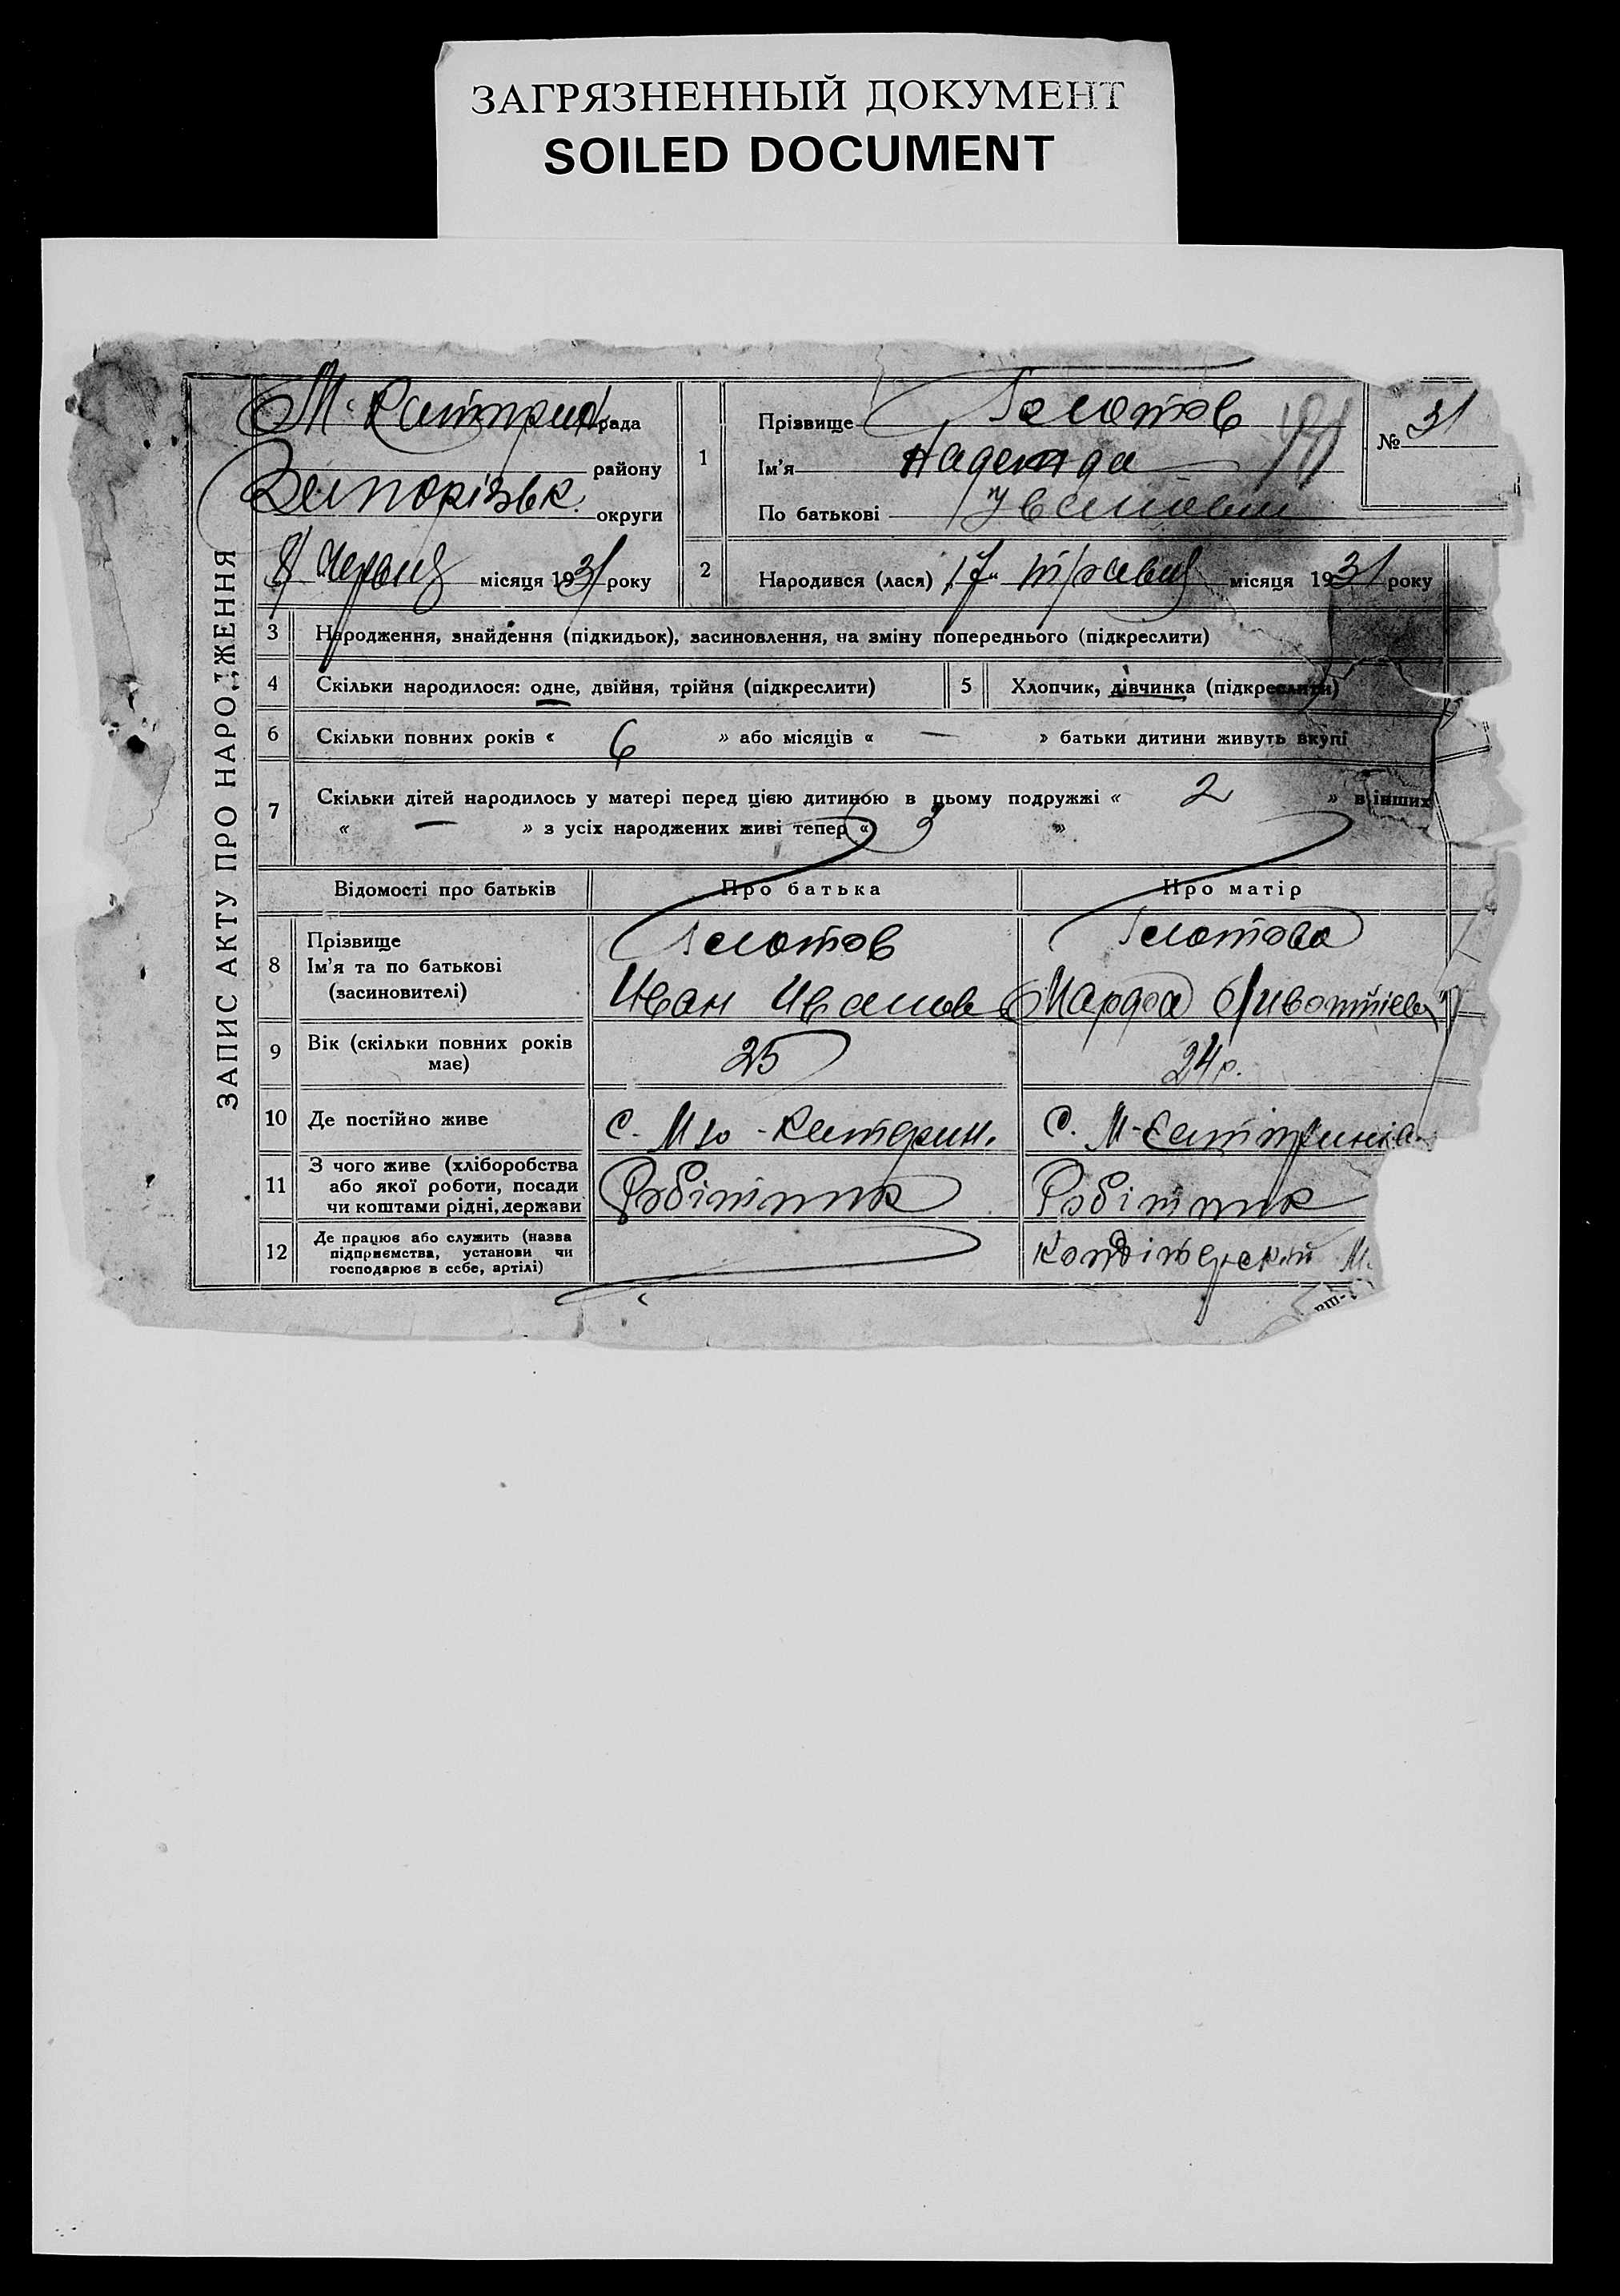 ЗАГРЯЗНЕННЫЙ ДОКУМЕНТ
SOILED DOCUMENT
ЗАПИС АКТУ ПРО НАРОДЖЕННЯ
рада
району
Запорізьк. округи
8 червня місяця 1931 року
№ 31
1
Прізвище
Ім'я Надежда
По батькові
2
Народився (лася) 17 травня місяця 1931 року
3 Народження, знайдення (підкидьок), засиновлення, на зміну попереднього (підкреслити)
4 Скільки народилося: одне, двійня, трійня (підкреслити)
5 Хлопчик, дівчинка (підкреслити)
6 Скільки повних років « 6 » або місяців « — » батьки дитини живуть вкупі
7 Скільки дітей народилось у матері перед цією дитиною в цьому подружжі « 2 » в інших
« — » з усіх народжених живі тепер « 3 »
Відомості про батьків
Про батька
Про матір
8 Прізвище
Ім'я та по батькові
(засновителі)
Иван Иванов
Марфа
9 Вік (скільки повних років
має)
25
24 р.
10 Де постійно живе
с. М
с. М-
11 З чого живе (хліборобства
або якої роботи, посади
чи коштами рідні, держави
Робітник
Робітник
12 Де працює або служить (назва
підприємства, установи чи
господарює в себе, артілі)